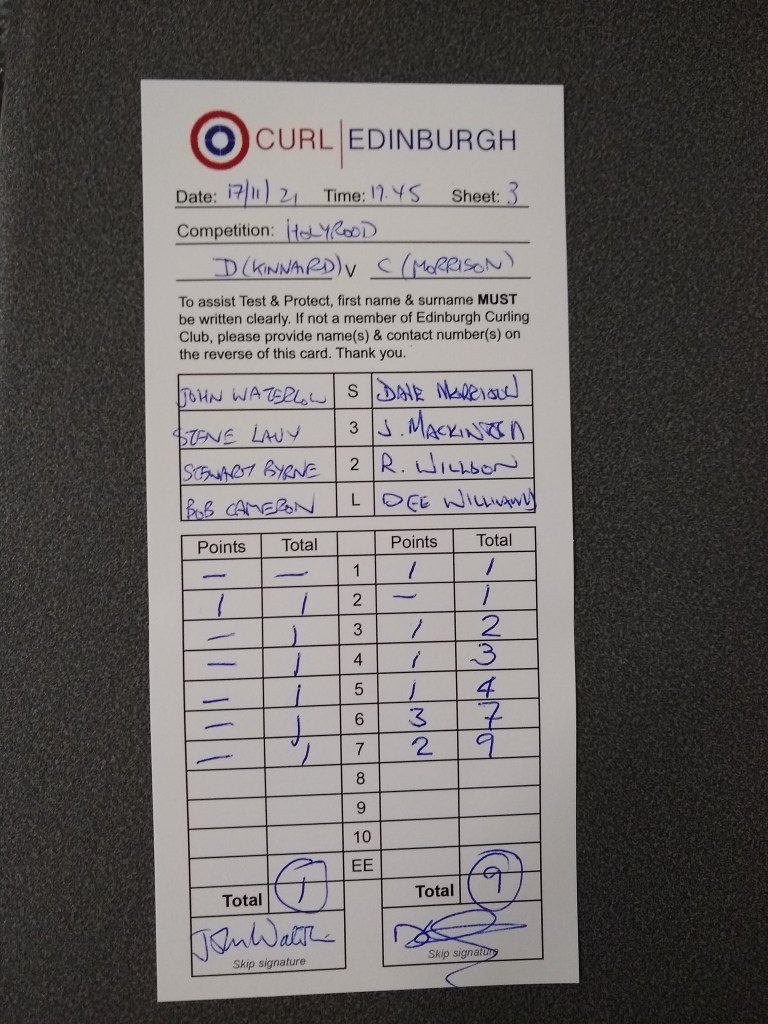 CURL EDINBURGH
Date: 17/11/21 Time: 17.45 Sheet: 3
Competition: HOLYROOD
D (KINNAIRD) v C (MORRISON)
To assist Test & Protect, first name & surname MUST
be written clearly. If not a member of Edinburgh Curling
Club, please provide name(s) & contact number(s) on
the reverse of this card. Thank you.
JOHN WATERLOW S DAVE MORRISON
STEVE LAVY 3 J. MACKINTOSH
STEWART BYRNE 2 R. WILLSON
BOB CAMERON L DEE WILLIAMS
Points Total Points Total
— — 1 1 1
1 1 2 — 1
— 1 3 1 2
— 1 4 1 3
— 1 5 1 4
— 1 6 3 7
— 1 7 2 9
8
9
10
EE
Total 1 Total 9
Skip signature Skip signature